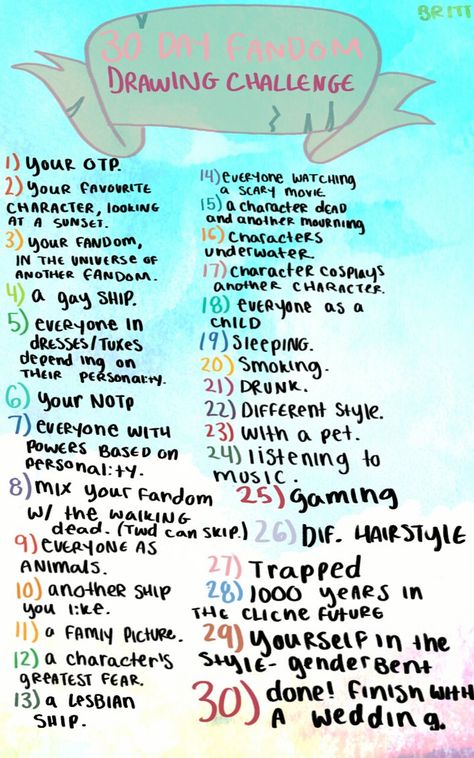 BRITT
30 DAY FANDOM
DRAWING CHALLENGE
1) YOUR OTP.
2) YOUR FAVOURITE
CHARACTER, LOOKING
AT A SUNSET.
3) YOUR FANDOM,
IN THE UNIVERSE OF
ANOTHER FANDOM.
4) a gay SHIP.
5) everyone in
DRESSES/TUXES
depending on
THEIR PERSONALITY.
6) YOUR NOTP
7) everyone WITH
POWERS BASED ON
PERSONALITY.
8) MIX YOUR FANDOM
W/ THE WALKING
dead. (TWD can SKIP.)
9) EVERYONE AS
ANIMALS.
10) another SHIP
you like.
11) a FAMLY PICTURE.
12) a character's
GREATEST FEAR.
13) a LESBIAN
SHIP.
14) everyone WATCHING
a SCARY MOVIE.
15) a character DEAD
and another mourning
16) Characters
underwater.
17) character cosplays
another CHARACTER.
18) everyone as a
CHILD
19) SLEEPING.
20) Smoking.
21) DRUNK.
22) DIFFERENT STYLE.
23) WITH a PET.
24) listening to
MUSIC.
25) gaming
26) DIF. HAIRSTYLE
27) Trapped
28) 1000 years in
THE CLICHE FUTURE
29) YOURSELF IN THE
STYLE- genderBent
30) done! FINISH WITH
A WEDDING.